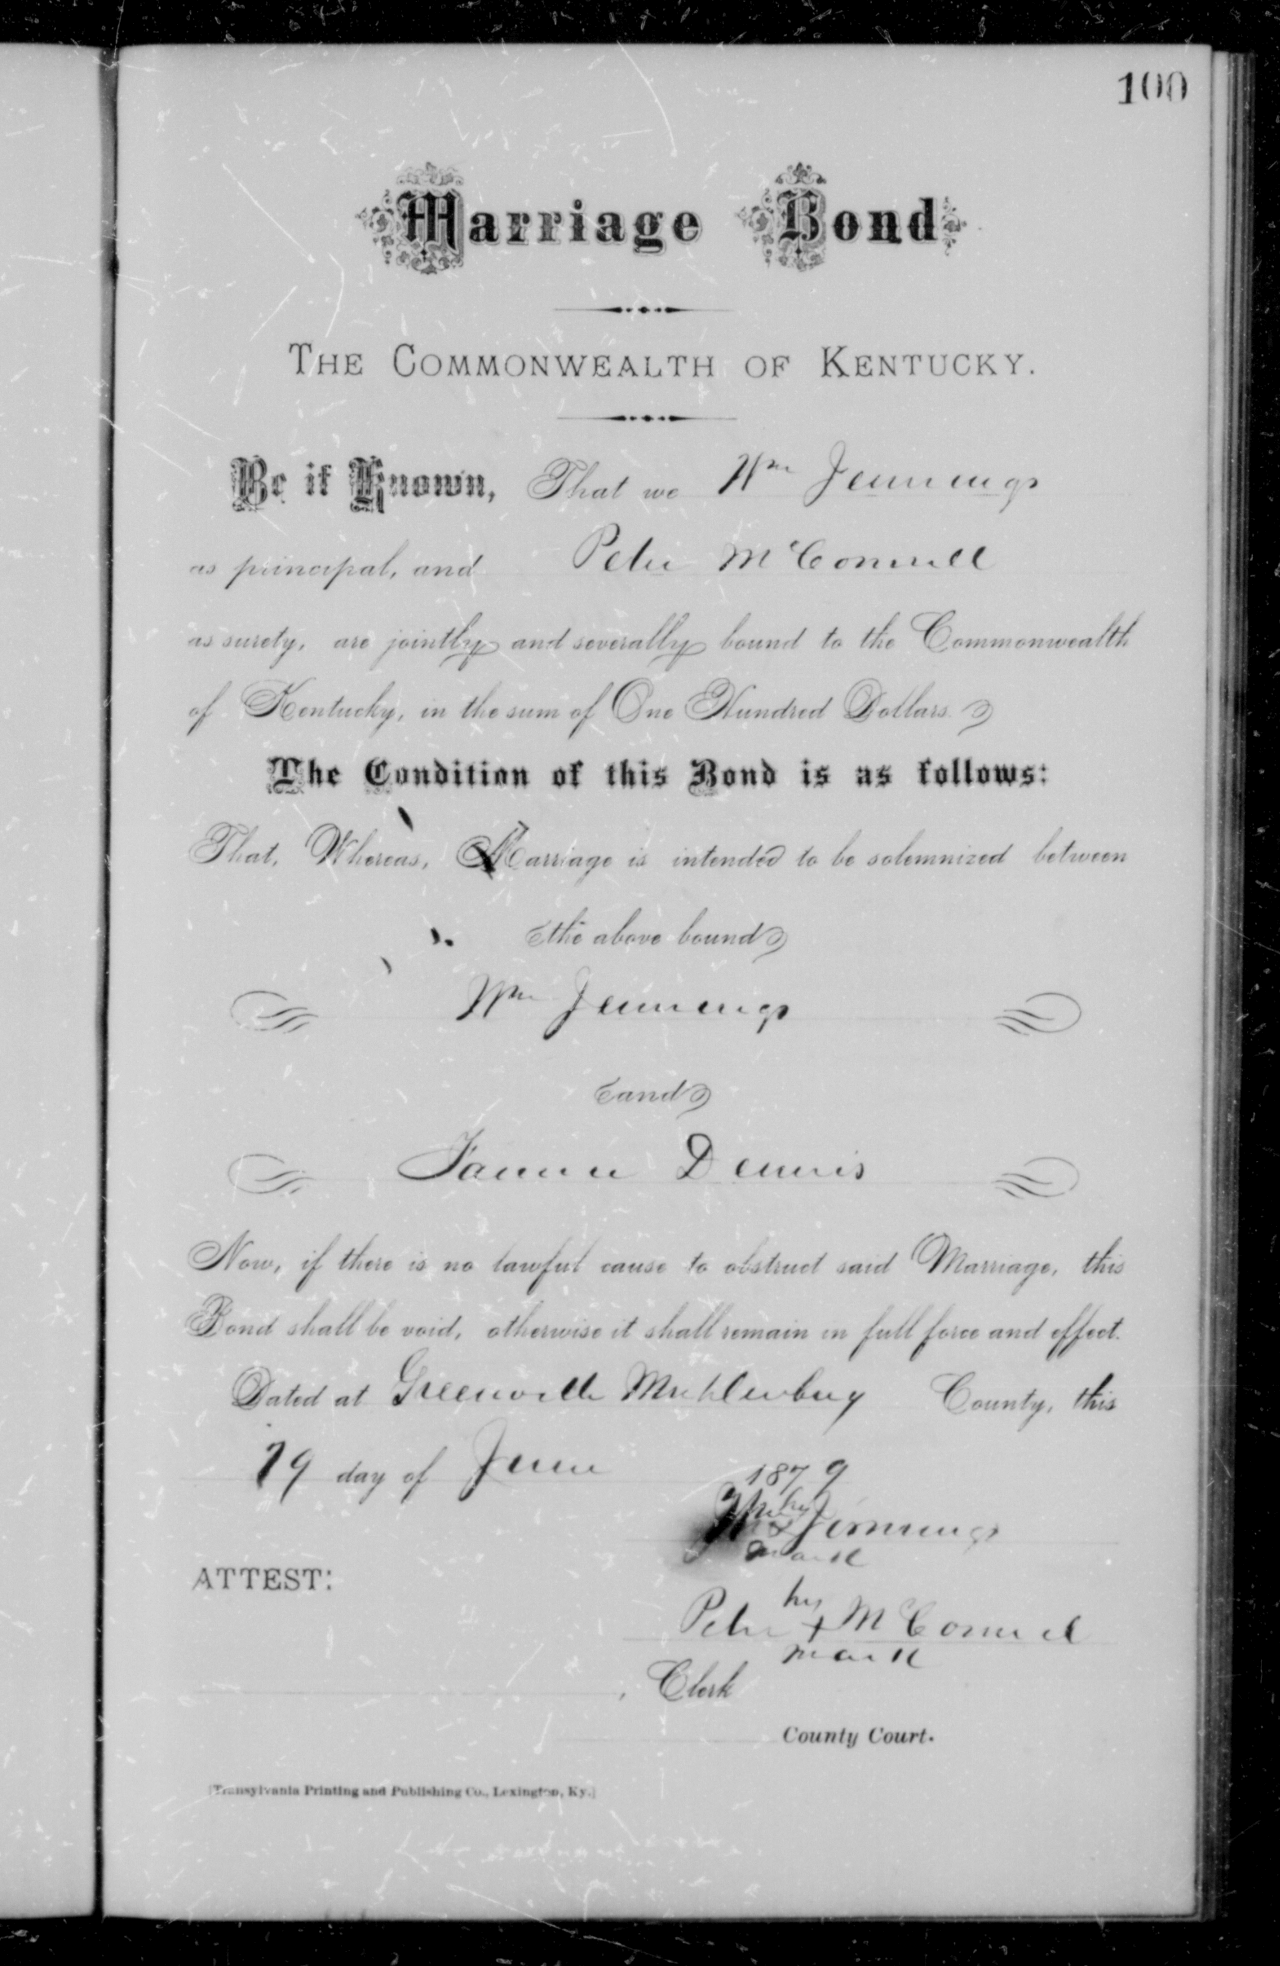 100
Marriage Bond
THE COMMONWEALTH OF KENTUCKY.
Be it Known, That we Wm Jennings
as principal, and Peter McConnell
as surety, are jointly and severally bound to the Commonwealth
of Kentucky, in the sum of One Hundred Dollars.
The Condition of this Bond is as follows:
That, Whereas, Marriage is intended to be solemnized between
the above bound
Wm Jennings
and
Fannie Dennis
Now, if there is no lawful cause to obstruct said Marriage, this
Bond shall be void, otherwise it shall remain in full force and effect.
Dated at Greenville Muhlenburg County, this
19 day of June 1879
his
Wm x Jennings
mark
ATTEST:
his
Peter x McConnell
mark
, Clerk
County Court.
[Transylvania Printing and Publishing Co., Lexington, Ky.]